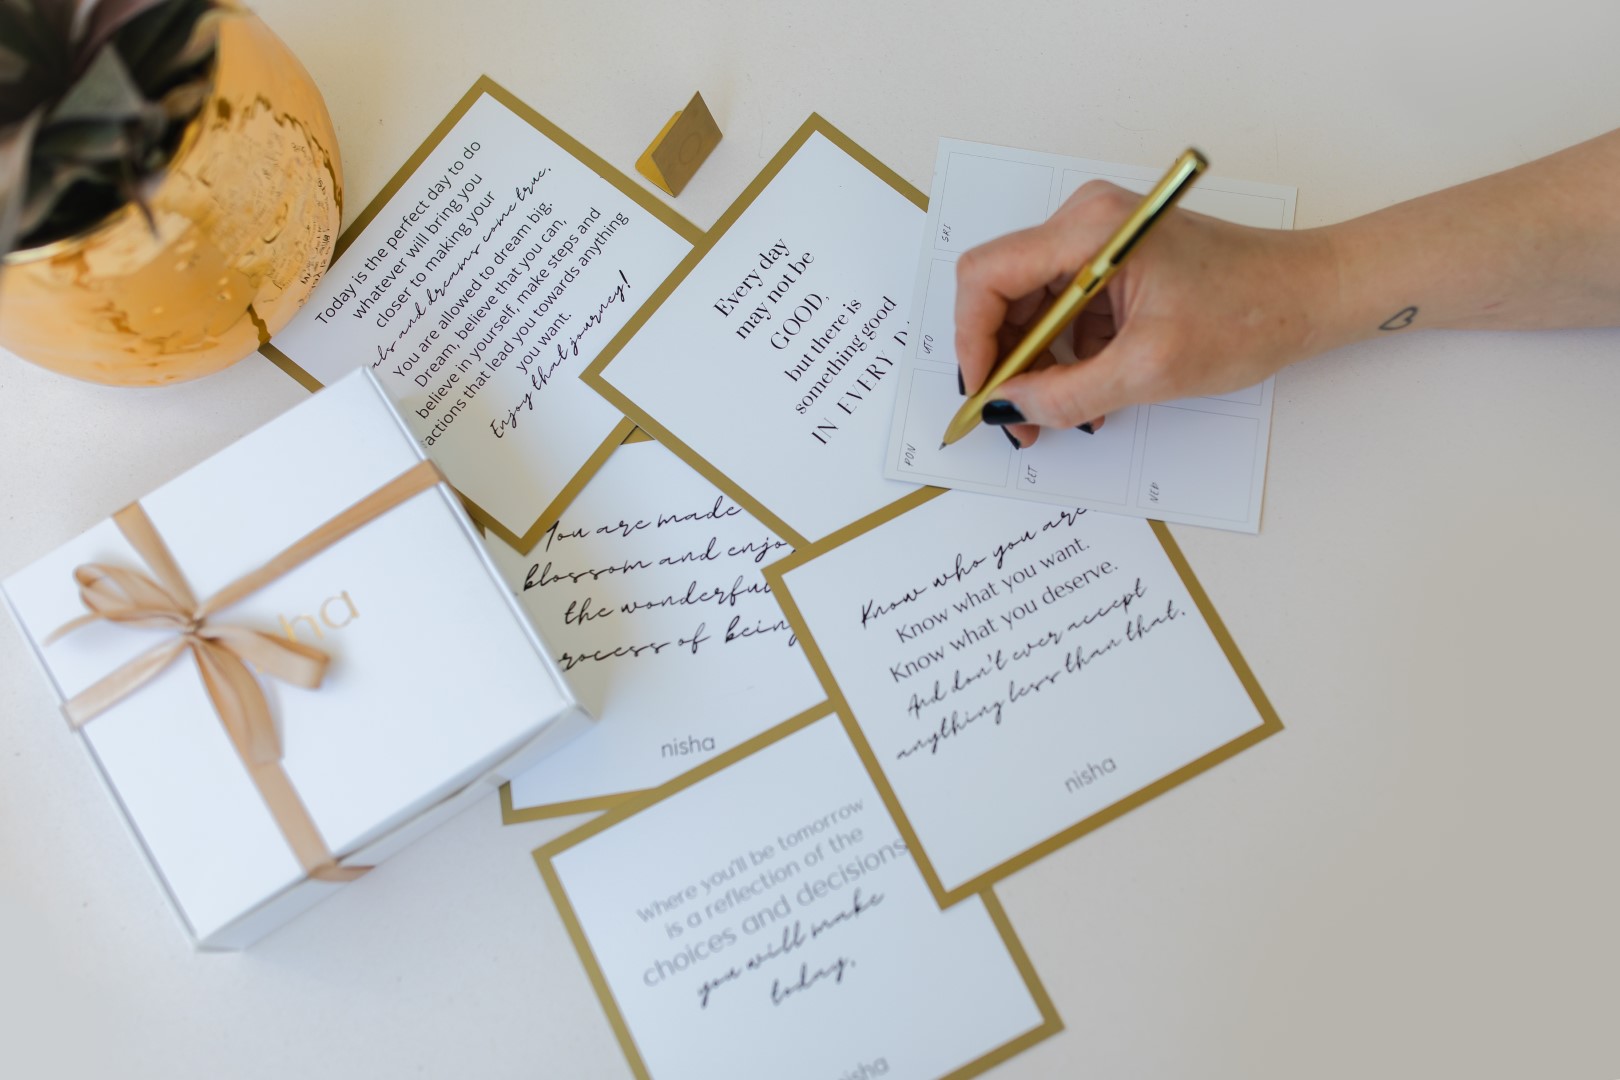 Today is the perfect day to do
whatever will bring you
closer to making your
and dreams come true.
You are allowed to dream big.
Dream, believe that you can,
believe in yourself, make steps and
actions that lead you towards anything
you want.
Enjoy that journey!
Every day
may not be
GOOD,
but there is
something good
IN EVERY
SRI
UTO
PON
ČET
NED
You are made
blossom and enjoy
the wonderful
process of being
nisha
Know who you are.
Know what you want.
Know what you deserve.
And don't ever accept
anything less than that.
nisha
Where you'll be tomorrow
is a reflection of the
choices and decisions
you will make
today.
nisha
ha